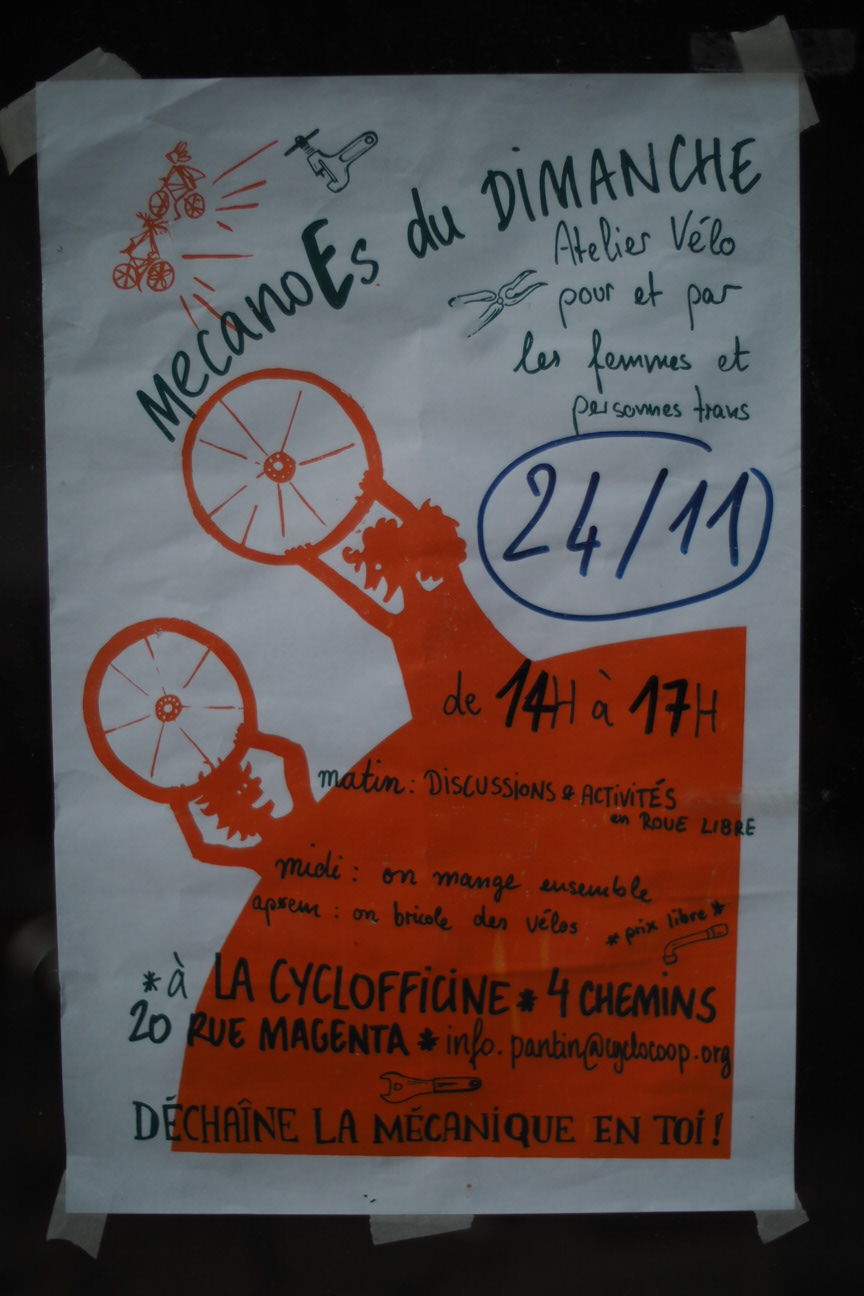 MecanoEs du DIMANCHE
Atelier Vélo
pour et par
les femmes et
personnes trans
24/11
de 14H à 17H
matin : DISCUSSIONS & ACTIVITÉS
en ROUE LIBRE
midi : on mange ensemble
aprem : on bricole des vélos
* prix libre *
* à LA CYCLOFFICINE * 4 CHEMINS
20 RUE MAGENTA * info.pantin@cyclocoop.org
DÉCHAÎNE LA MÉCANIQUE EN TOI !